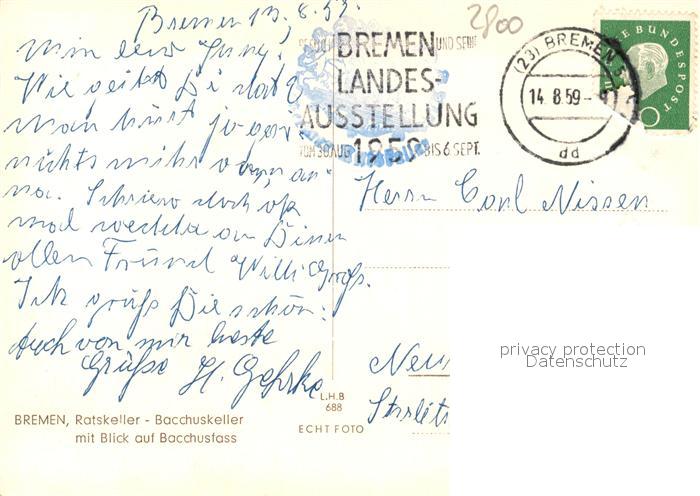 Bremen 13.8.59.
Min leev Jung!
Wie geiht Di dat?
Man hürt jo gor
nichts mihr von
na. Schriew doch ok
mal wedder an Dinen
ollen Fründ Willi
Ick grüß Die schön.
Auch von mir beste
Grüße H. Gehrke
2800
BREMEN UND SEINE
LANDES-
AUSSTELLUNG
1959
VOM 30 AUG BIS 6 SEPT.
(23) BREMEN 5
14.8.59
dd
DEUTSCHE BUNDESPOST
Herrn Carl Nissen
Neu
Strelit
privacy protection
Datenschutz
L.H.B
688
ECHT FOTO
BREMEN, Ratskeller - Bacchuskeller
mit Blick auf Bacchusfass